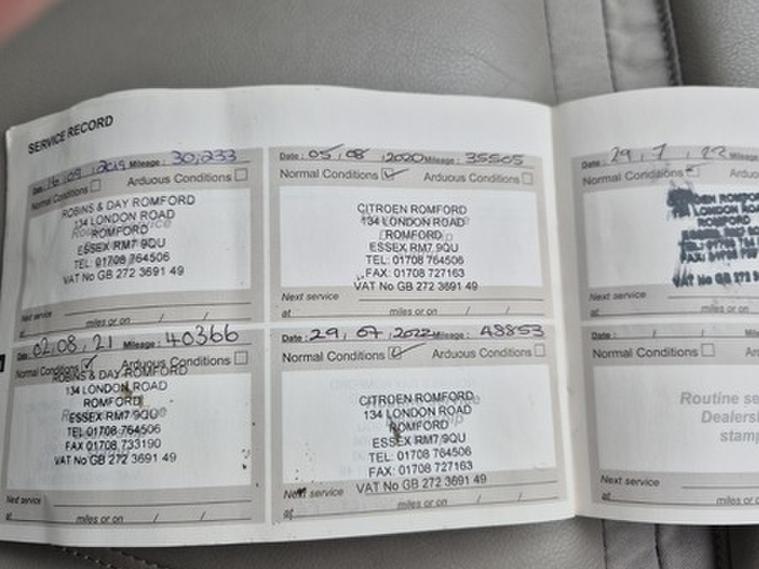 SERVICE RECORD
Date: 16, 09, 2019 Mileage: 30,233
Normal Conditions Arduous Conditions
ROBINS & DAY ROMFORD
134 LONDON ROAD
ROMFORD
ESSEX RM7 9QU
TEL: 01708 764506
VAT No GB 272 3691 49
Next service
at miles or on / /
Date: 05, 08, 2020 Mileage: 35505
Normal Conditions Arduous Conditions
CITROEN ROMFORD
134 LONDON ROAD
ROMFORD
ESSEX RM7 9QU
TEL: 01708 764506
FAX: 01708 727163
VAT No GB 272 3691 49
Next service
at miles or on / /
Date: 29, 7, 22 Mileage
Normal Conditions Arduou
ROMFORD
Next service
at miles or on
Date: 02, 08, 21 Mileage: 40366
Normal Conditions Arduous Conditions
ROBINS & DAY ROMFORD
134 LONDON ROAD
ROMFORD
ESSEX RM7 9QU
TEL 01708 764506
FAX 01708 733190
VAT No GB 272 3691 49
Next service
at miles or on / /
Date: 29, 07, 2022 Mileage: 48853
Normal Conditions Arduous Conditions
CITROEN ROMFORD
134 LONDON ROAD
ROMFORD
ESSEX RM7 9QU
TEL: 01708 764506
FAX: 01708 727163
VAT No GB 272 3691 49
Next service
at miles or on / /
Date: / / Mileage
Normal Conditions Arduou
Routine se
Dealersh
stamp
Next service
at miles or on